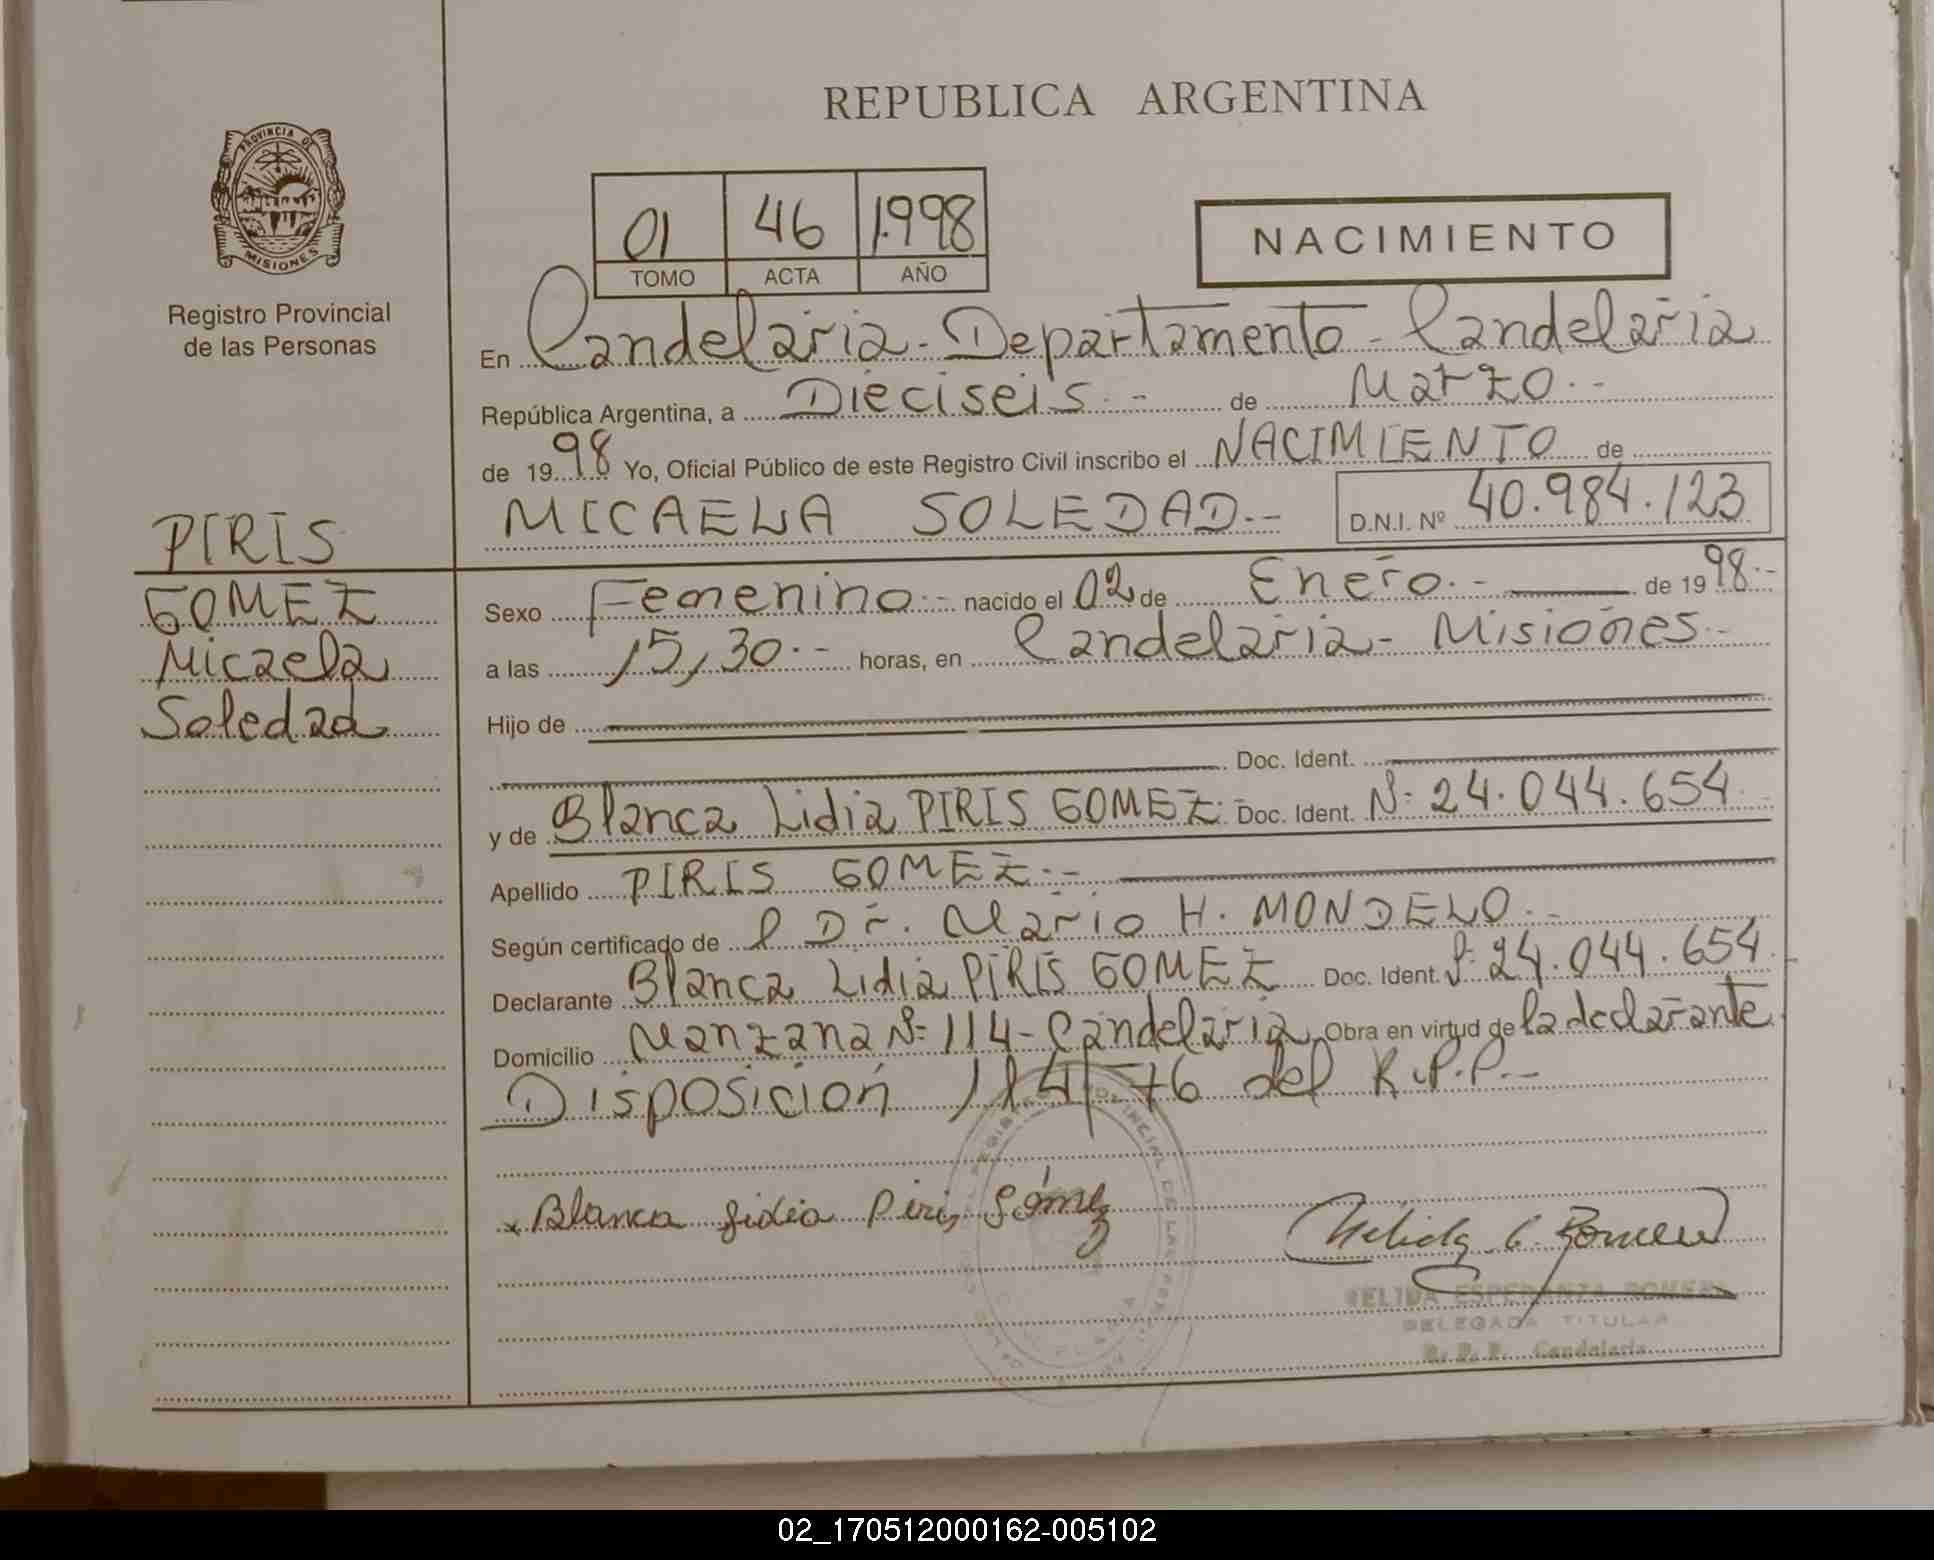 REPUBLICA ARGENTINA
PROVINCIA DE
MISIONES
Registro Provincial
de las Personas
01 46 1.998
TOMO ACTA AÑO
NACIMIENTO
En Candelaria - Departamento - Candelaria
República Argentina, a Dieciseis.- de Marzo.-
de 1998 Yo, Oficial Público de este Registro Civil inscribo el NACIMIENTO de
MICAELA SOLEDAD.- D.N.I. Nº 40.984.123
PIRIS
GOMEZ
Micaela
Soledad
Sexo Femenino.- nacido el 02 de Enero.- de 1998.-
a las 15,30.- horas, en Candelaria - Misiones.-
Hijo de
Doc. Ident.
y de Blanca Lidia PIRIS GOMEZ.- Doc. Ident. Nº 24.044.654
Apellido PIRIS GOMEZ.-
Según certificado de l Dr. Mario H. MONDELO.-
Declarante Blanca Lidia PIRIS GOMEZ Doc. Ident. Nº 24.044.654
Domicilio Manzana Nº 114 - Candelaria Obra en virtud de la declarante
Disposicion 114/76 del R.P.P.-
x Blanca Lidia Piris Gómez
Nelida E. Romero
NELIDA ESPERANZA ROMERO
DELEGADA TITULAR
R. P. P. Candelaria
02_170512000162-005102